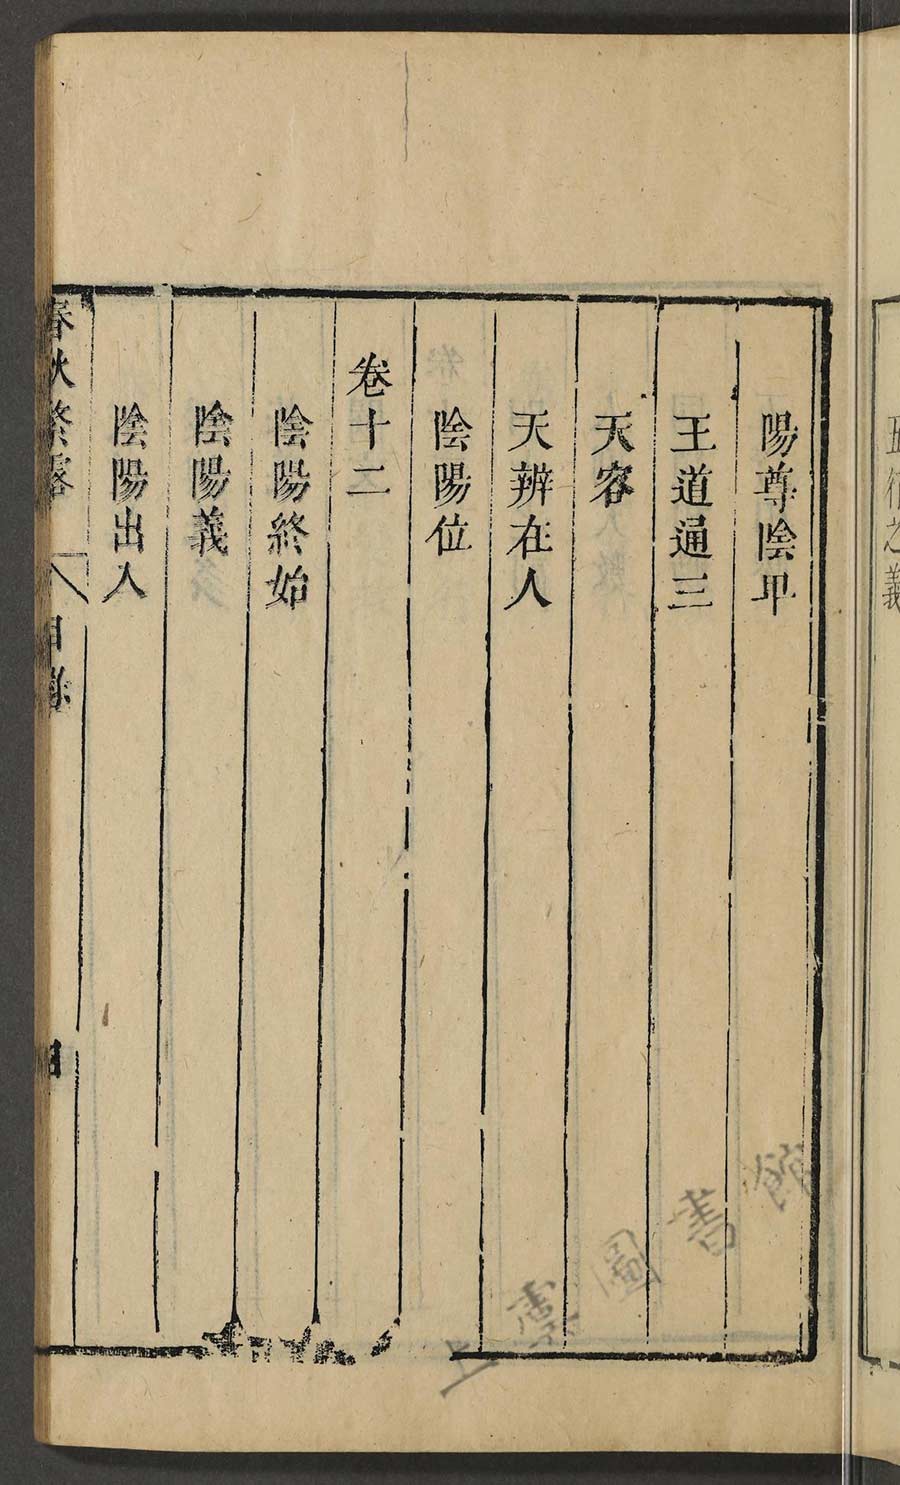 五行之義
陽尊陰卑
王道通三
天容
天辨在人
陰陽位
卷十二
陰陽終始
陰陽義
陰陽出入
春秋繁露
目錄
四
圖書館